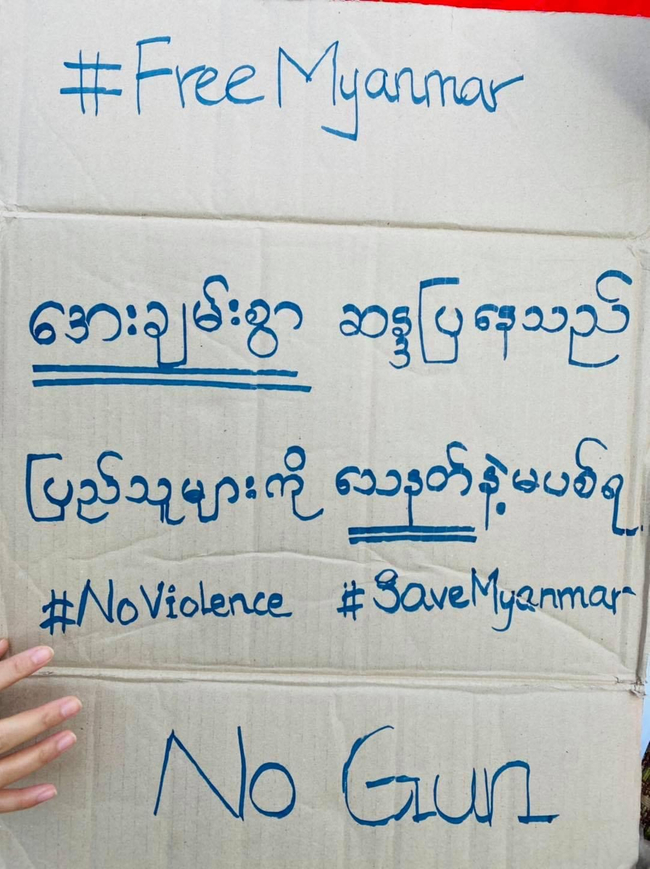 #FreeMyanmar
အေးချမ်းစွာ ဆန္ဒပြနေသည်
ပြည်သူများကို သေနတ်နဲ့မပစ်ရ
#NoViolence #SaveMyanmar
No Gun